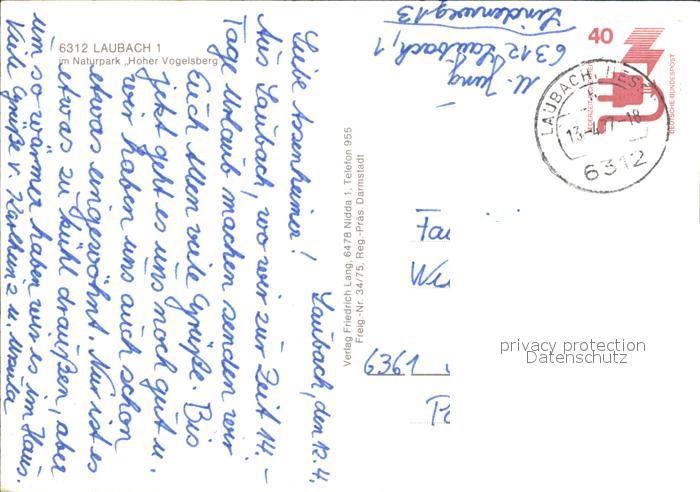 6312 LAUBACH 1
im Naturpark „Hoher Vogelsberg
Laubach, den 12.4.
Liebe Assenheimer!
Aus Laubach, wo wir zur Zeit 14-
Tage Urlaub machen senden wir
Euch Allen viele Grüße. Bis
jetzt geht es uns noch gut u.
wir haben uns auch schon
etwas eingewöhnt. Nur ist es
etwas zu kühl draußen, aber
um so wärmer haben wir es im Haus.
Viele Grüße v. Karlheinz u. Ursula
Verlag Friedrich Lang, 6478 Nidda 1, Telefon 955
Freig.-Nr. 34/75, Reg.-Präs. Darmstadt
U. Jung
6312 Laubach, 1
Lindenweg 13
40
JEDERZEIT
DEUTSCHE BUNDESPOST
LAUBACH, HESS
13.-4.77-18
6312
Fa
6361
privacy protection
Datenschutz